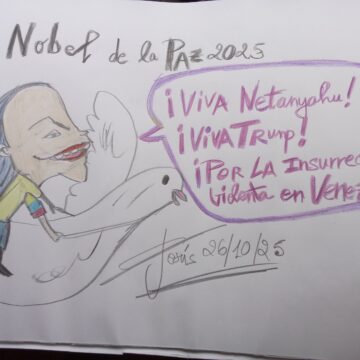 Nobel de la Paz 2025
¡Viva Netanyahu!
¡Viva Trump!
¡Por la Insurrec
violenta en Vene
26/10/25